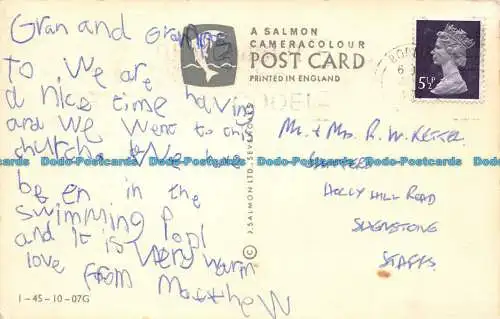 Gran and Grampa
To, we are
a nice time having
and we went to the
church. We have
be en in the
swimming P
and It is pool
very warm
love from Matthew
1-45-10-07G
A SALMON
CAMERACOLOUR
POST CARD
PRINTED IN ENGLAND
© J. SALMON LTD., SEVENOAKS
5½P
Mr. & Mrs. R. W.
HOLLY HILL ROAD
STAFFS.
Dodo-Postcards Dodo-Postcards Dodo-Postcards Dodo-Postcards Dodo-Postcards